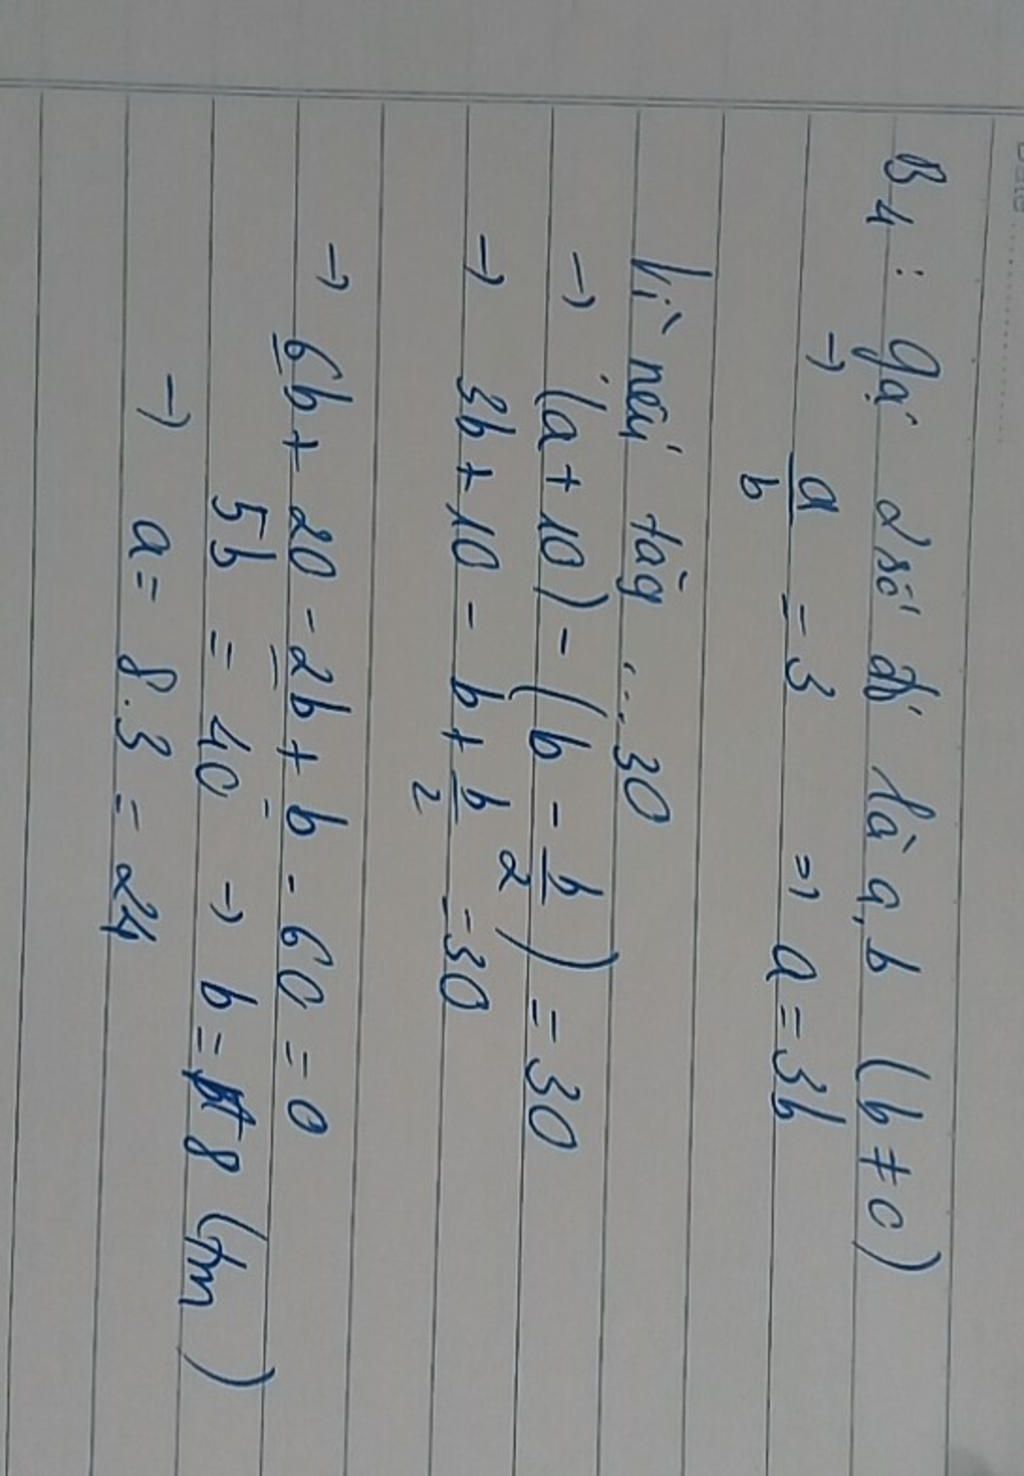 B4: Gọi 2 số đó là a, b (b ≠ 0)
→ a/b = 3 => a = 3b
Vì nếu tăg ... 30
→ (a + 10) - (b - b/2) = 30
→ 3b + 10 - b + b/2 = 30
→ 6b + 20 - 2b + b - 60 = 0
5b = 40 → b = 8 (tm)
→ a = 8.3 = 24